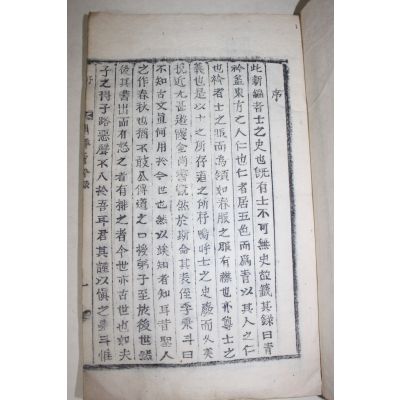 序
此新編者士之史也旣有士不可無史故籤其錄曰青
衿盖東有之人仁也仁者居五色而爲青以其人之仁
也衿者士之服而爲領如春服之服有襟也亦尊士之
義也是以士之所存道之所存嗚呼士之史廢而久矣
挽近尤甚金尙慨然於斯命其侄季曰
不知古文何用於今世也然以埃知者知耳昔聖人
之作春秋也猶不敢傳道之口授弟子至後世然
後其書出而有怒之者有排之者今世亦古世也如夫
子之得子路惡聲不入於吾耳君其謹以愼之耳惟
序
一